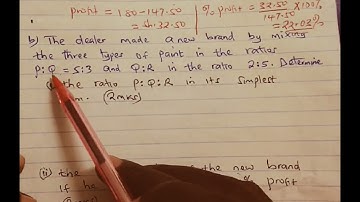 profit = 180-147.50
= sh 32.50
% profit = 32.50 × 100%
147.50
= 22.03%
b) The dealer made a new brand by mixing
the three types of paint in the ratios
P:Q = 5:3 and Q:R in the ratio 2:5. Determine
the ratio P:Q:R in its simplest
(2mks)
(ii) the new brand
If he % profit